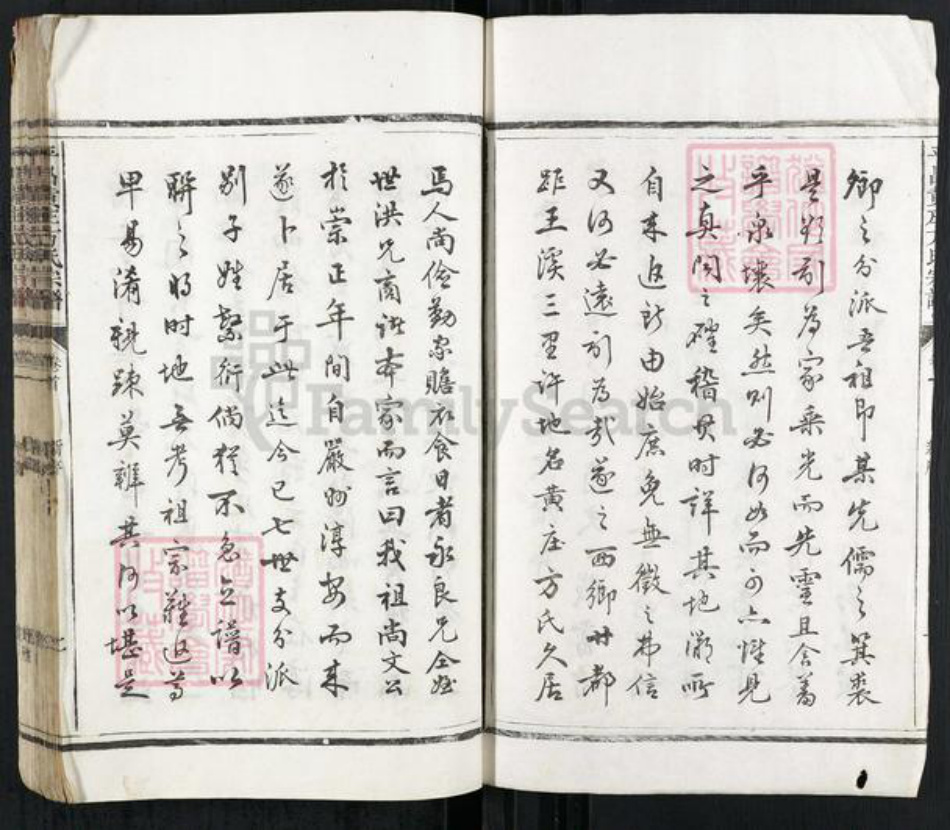 卿之分派吾祖即某先儒之箕裘
是影引为家乘光而先灵且含羞
乎泉壤矣然则必何如而可亦惟见
之真闻之確稽其时详其地溯所
自来追所由始庶免無徵之弗信
又何必遠引为哉遂之西鄉卅都
距王溪三里许地名黄庄方氏久居
馬人尚俭勤家贍衣食日者永良兄仝姪
世洪兄商诸本家而言曰我祖尚文公
於崇正年間自嚴州淳安而来
遂卜居于此迄今已七世支分派
别子姓繁衍倘犹不急立譜以
聯之将时地無考祖宗難追尊
卑易淆親疎莫辨其何以堪是
FamilySearch